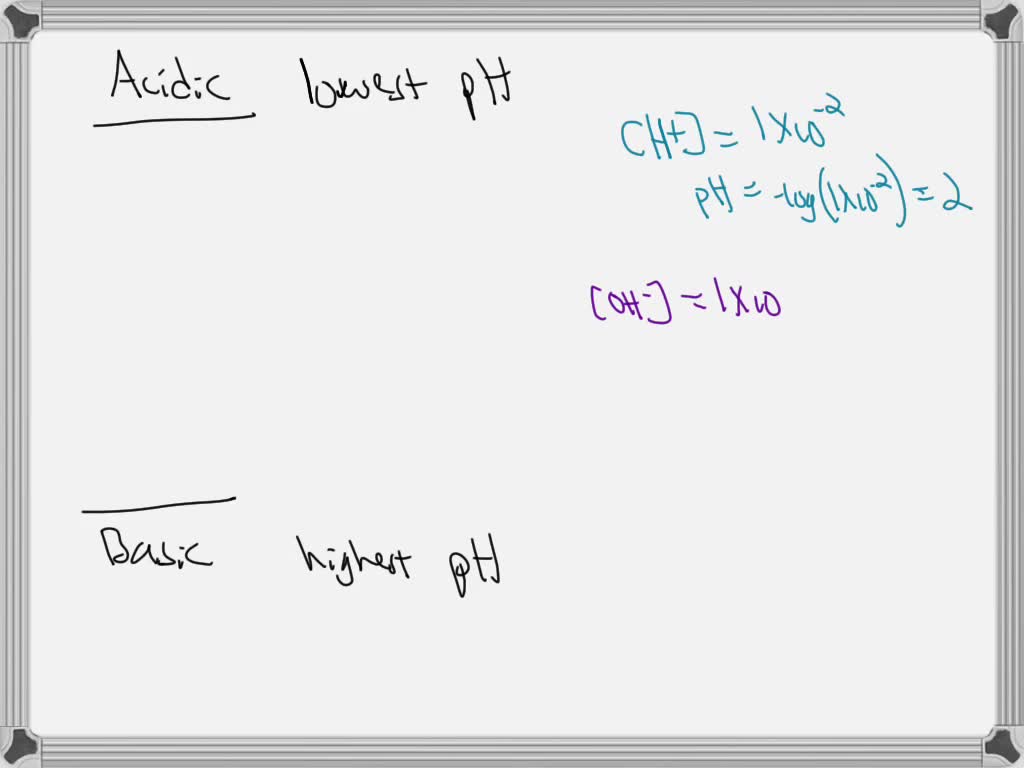 Acidic lowest pH
[H+] = 1x10⁻²
pH = -log(1x10⁻²) = 2
[OH⁻] = 1x10
Basic highest pH